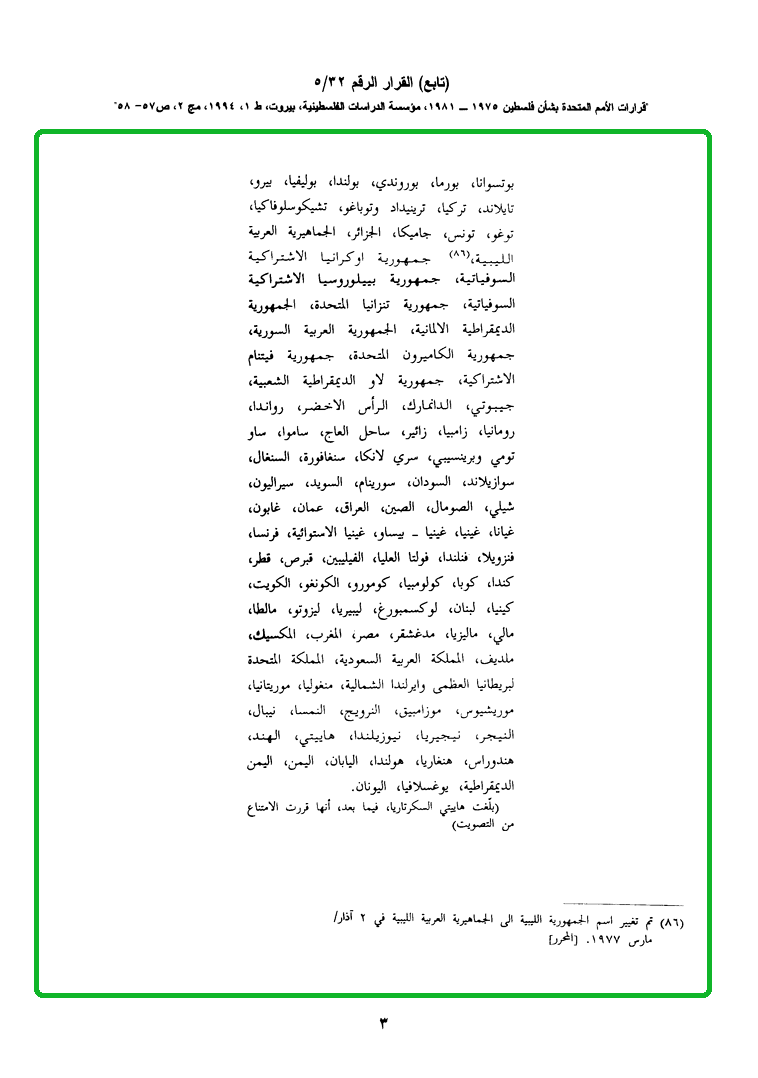 (تابع) القرار الرقم ٥/٣٢
"قرارات الأمم المتحدة بشأن فلسطين ١٩٧٥ ــ ١٩٨١، مؤسسة الدراسات الفلسطينية، بيروت، ط ١، ١٩٩٤، مج ٢، ص٥٧- ٥٨"
بوتسوانا، بورما، بوروندي، بولندا، بوليفيا، بيرو،
تايلاند، تركيا، ترينيداد وتوباغو، تشيكوسلوفاكيا،
توغو، تونس، جاميكا، الجزائر، الجماهيرية العربية
الليبية،(٨٦) جمهورية اوكرانيا الاشتراكية
السوفياتية، جمهورية بييلوروسيا الاشتراكية
السوفياتية، جمهورية تنزانيا المتحدة، الجمهورية
الديمقراطية الالمانية، الجمهورية العربية السورية،
جمهورية الكاميرون المتحدة، جمهورية فيتنام
الاشتراكية، جمهورية لاو الديمقراطية الشعبية،
جيبوتي، الدانمارك، الرأس الاخضر، رواندا،
رومانيا، زامبيا، زائير، ساحل العاج، ساموا، ساو
تومي وبرينسيبي، سري لانكا، سنغافورة، السنغال،
سوازيلاند، السودان، سورينام، السويد، سيراليون،
شيلي، الصومال، الصين، العراق، عمان، غابون،
غيانا، غينيا، غينيا ــ بيساو، غينيا الاستوائية، فرنسا،
فنزويلا، فنلندا، فولتا العليا، الفيليبين، قبرص، قطر،
كندا، كوبا، كولومبيا، كومورو، الكونغو، الكويت،
كينيا، لبنان، لوكسمبورغ، ليبيريا، ليزوتو، مالطا،
مالي، ماليزيا، مدغشقر، مصر، المغرب، المكسيك،
ملديف، المملكة العربية السعودية، المملكة المتحدة
لبريطانيا العظمى وايرلندا الشمالية، منغوليا، موريتانيا،
موريشيوس، موزامبيق، النرويج، النمسا، نيبال،
النيجر، نيجيريا، نيوزيلندا، هاييتي، الهند،
هندوراس، هنغاريا، هولندا، اليابان، اليمن، اليمن
الديمقراطية، يوغسلافيا، اليونان.
(بلّغت هاييتي السكرتاريا، فيما بعد، أنها قررت الامتناع
من التصويت)
(٨٦) تم تغيير اسم الجمهورية الليبية الى الجماهيرية العربية الليبية في ٢ آذار/
مارس ١٩٧٧. [المحرر]
٣